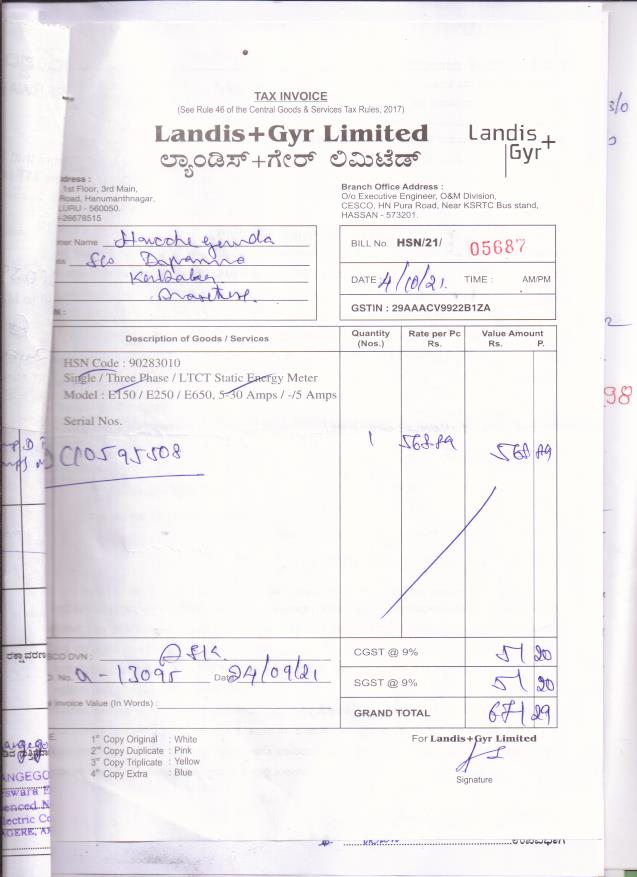 TAX INVOICE
(See Rule 46 of the Central Goods & Services Tax Rules, 2017)
Landis+Gyr Limited
ಲ್ಯಾಂಡಿಸ್+ಗೇರ್ ಲಿಮಿಟೆಡ್
Landis+
Gyr
dress :
1st Floor, 3rd Main,
Road, Hanumanthnagar,
LURU - 560050.
-26678515
Branch Office Address :
O/o Executive Engineer, O&M Division,
CESCO, HN Pura Road, Near KSRTC Bus stand,
HASSAN - 573201.
mer Name
S/o
BILL No. HSN/21/ 05687
DATE : 4/10/21. TIME : AM/PM
GSTIN : 29AAACV9922B1ZA
Description of Goods / Services Quantity (Nos.) Rate per Pc Rs. Value Amount Rs. P.
HSN Code : 90283010
Single / Three Phase / LTCT Static Energy Meter
Model : E150 / E250 / E650, 5-30 Amps / -/5 Amps
Serial Nos.
1 568.89 568 89
SCO DVN : ASK. CGST @ 9% 51 20
No. a-13095 Date 24/09/21 SGST @ 9% 51 20
Invoice Value (In Words) : GRAND TOTAL 671 29
1st Copy Original : White
2nd Copy Duplicate : Pink
3rd Copy Triplicate : Yellow
4th Copy Extra : Blue
For Landis+Gyr Limited
Signature
98
ANGEGO
eswara E
enced N
lectric Co
AGERE, A